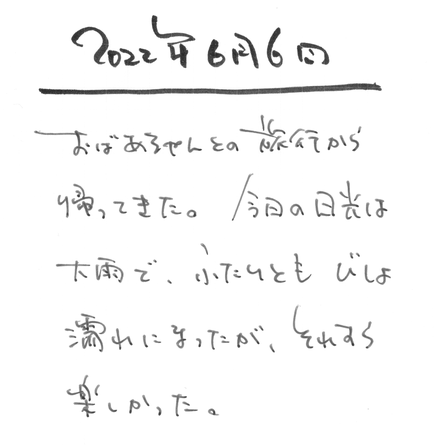 2022年6月6日
おばあちゃんとの旅行から
帰ってきた。今日の日光は
大雨で、ふたりともびしょ
濡れになったが、それすら
楽しかった。